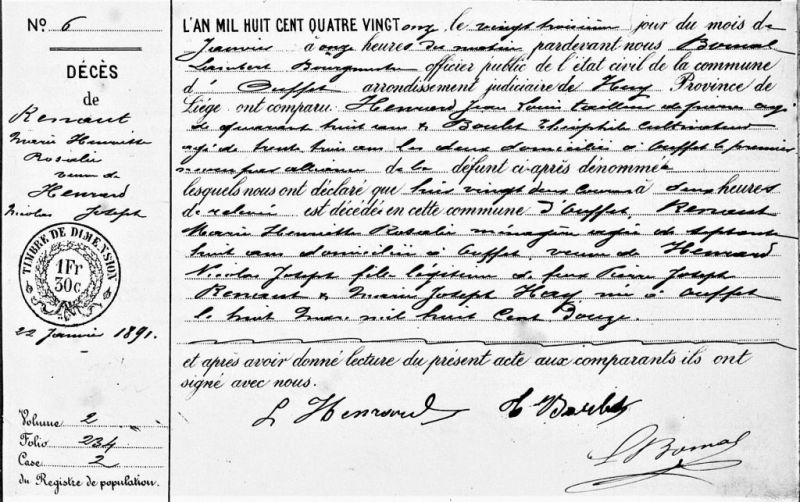 N° 6
DÉCÈS
de
Renaut
Marie Henriette
Rosalie
veuve de
Henrard
Nicolas Joseph
TIMBRE DE DIMENSION
1 Fr
30 c.
22 Janvier 1891.
Volume 2
Folio 234
Case 2
du Registre de population.
L'AN MIL HUIT CENT QUATRE VINGT onze, le vingt troisième jour du mois de
Janvier à onze heures du matin pardevant nous Bomal
Lambert Bourgmestre officier public de l'état civil de la commune
d' Ouffet arrondissement judiciaire de Huy Province de
Liége ont comparu Henrard Jean Louis tailleur de pierres agé
de quarante huit ans & Boulet Théophile cultivateur
agé de trente trois ans les deux domiciliés à Ouffet le premier
alliance de la défunt ci-après dénommée
lesquels nous ont déclaré que hier vingt deux courant à deux heures
de relevée est décédée en cette commune d'Ouffet, Renaut
Marie Henriette Rosalie ménagère agée de septante
huit ans domiciliée à Ouffet, veuve de Henrard
Nicolas Joseph fille légitime de feus Pierre Joseph
Renaut & Marie Joseph Hay née à Ouffet
le huit Mars mil huit Cent Douze.
et après avoir donné lecture du présent acte aux comparants ils ont
signé avec nous.
L Henrard T Boulet
L Bomal